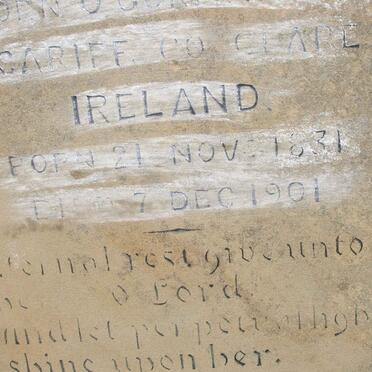 CARIFF. CO. CLARE
IRELAND.
BORN 21 NOV. 1831
DIED 7 DEC 1901
ernal rest give unto
he O Lord
and let perpetual ligh
shine upon her.